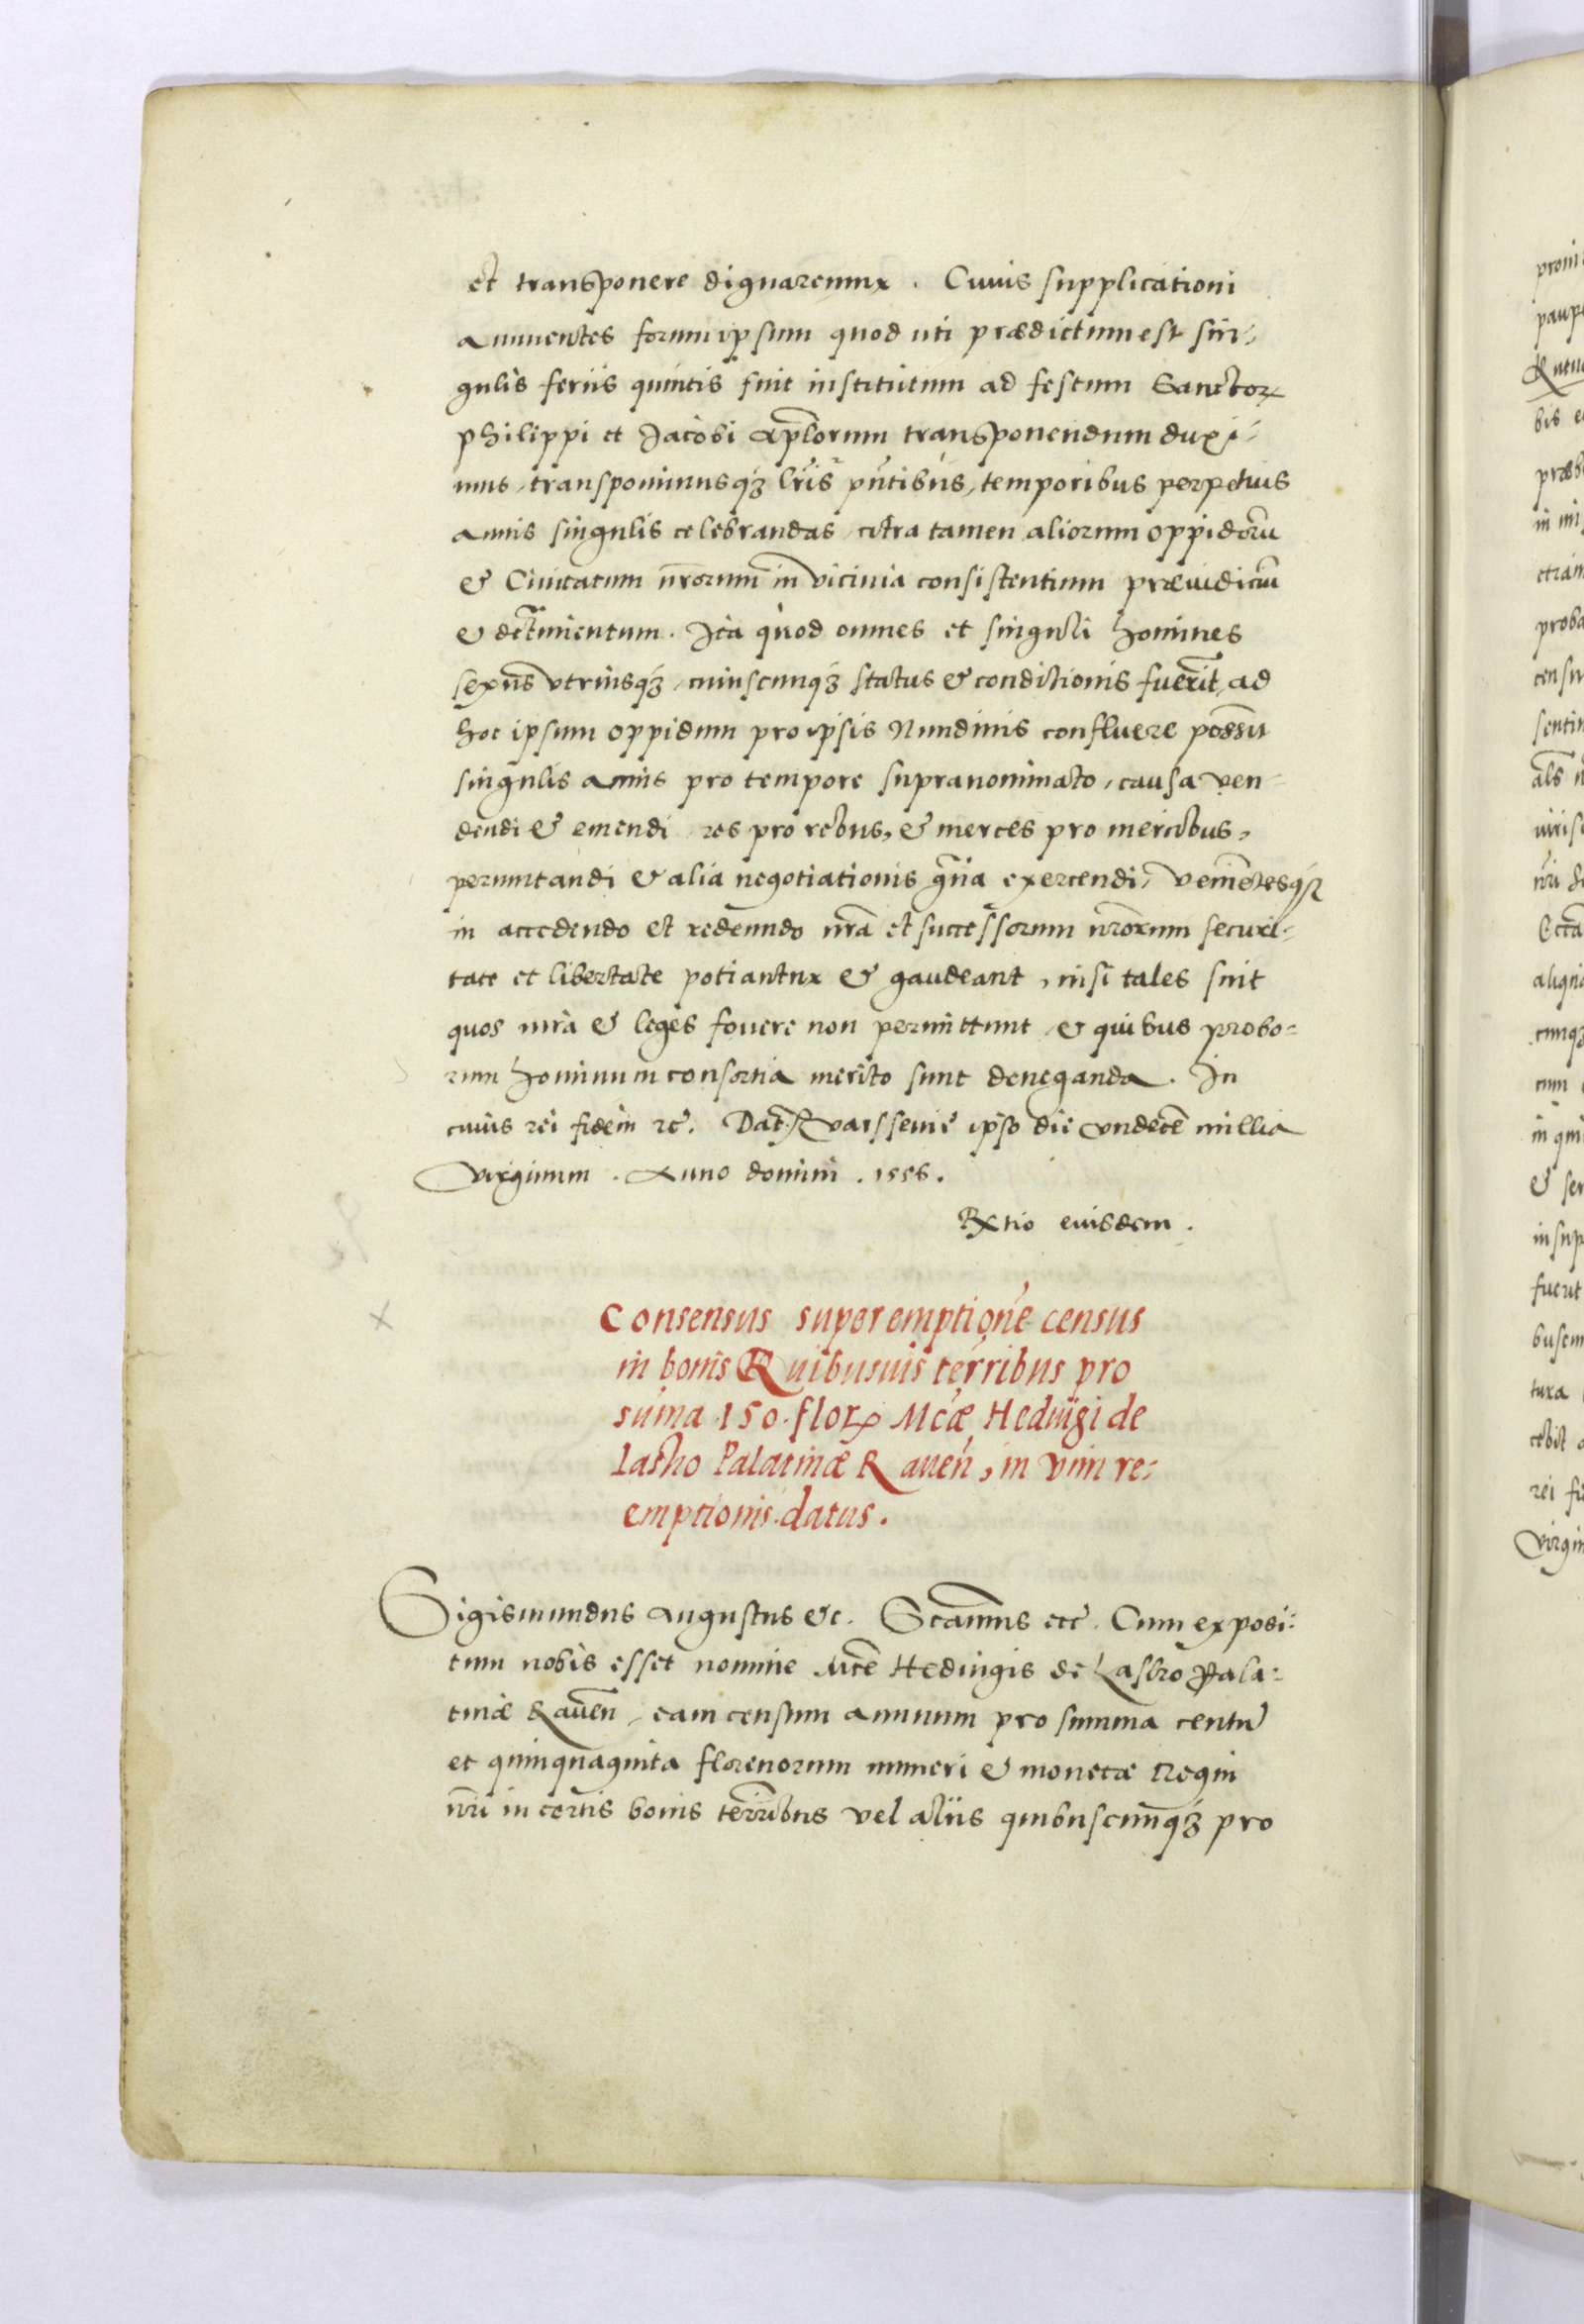 et transponere dignaremur. Cuius supplicationi
annuentes forum ipsum quod uti prædictum est sin-
gulis feriis quintis fuit institutum ad festum Sanctor
philippi et Jacobi Aplorum transponendum duxi-
mus, transponimusq3 lris pntibus, temporibus perpetuis
annis singulis celebrandas, citra tamen aliorum oppidoru
& Ciuitatum nrorum in vicinia consistentium præiudiciu
& detrimentum. Ita quod omnes et singuli homines
sexus vtriusq3, cuiuscunq3 status & conditionis fuerit, ad
hoc ipsum oppidum pro ipsis Nundinis confluere possint
singulis annis pro tempore supranominato, causa ven-
dendi & emendi res pro rebus, & merces pro mercibus,
permutandi & alia negotiationis gna exercendi, venietesq3
in accedendo et redeundo nra et successorum nrorum securi-
tate et libertate potiantur & gaudeant, nisi tales sint
quos iura & leges fouere non permittunt, & quibus probo-
rum hominum consortia merito sunt deneganda. In
cuius rei fidem rc. Dat. Varssenie ipso die vndece millia
virginum. Anno domini. 1556.
Rxtio eiusdem.
Consensus super emptione census
in bonis Quibusuis terribus pro
suma 150. flor Mcæ Heduigi de
Lasko Palatinæ Rauen, in vim re-
emptionis. datus.
Sigismundus augustus &c. Scamus etc. Cum exposi-
tum nobis esset nomine Mce Heduigis de Lasko Pala-
tinæ Rauen, eam censum annuum pro summa centu
et quinquaginta florenorum numeri & monetæ Regni
nri in certis bonis terribus vel aliis quibuscunq3 pro